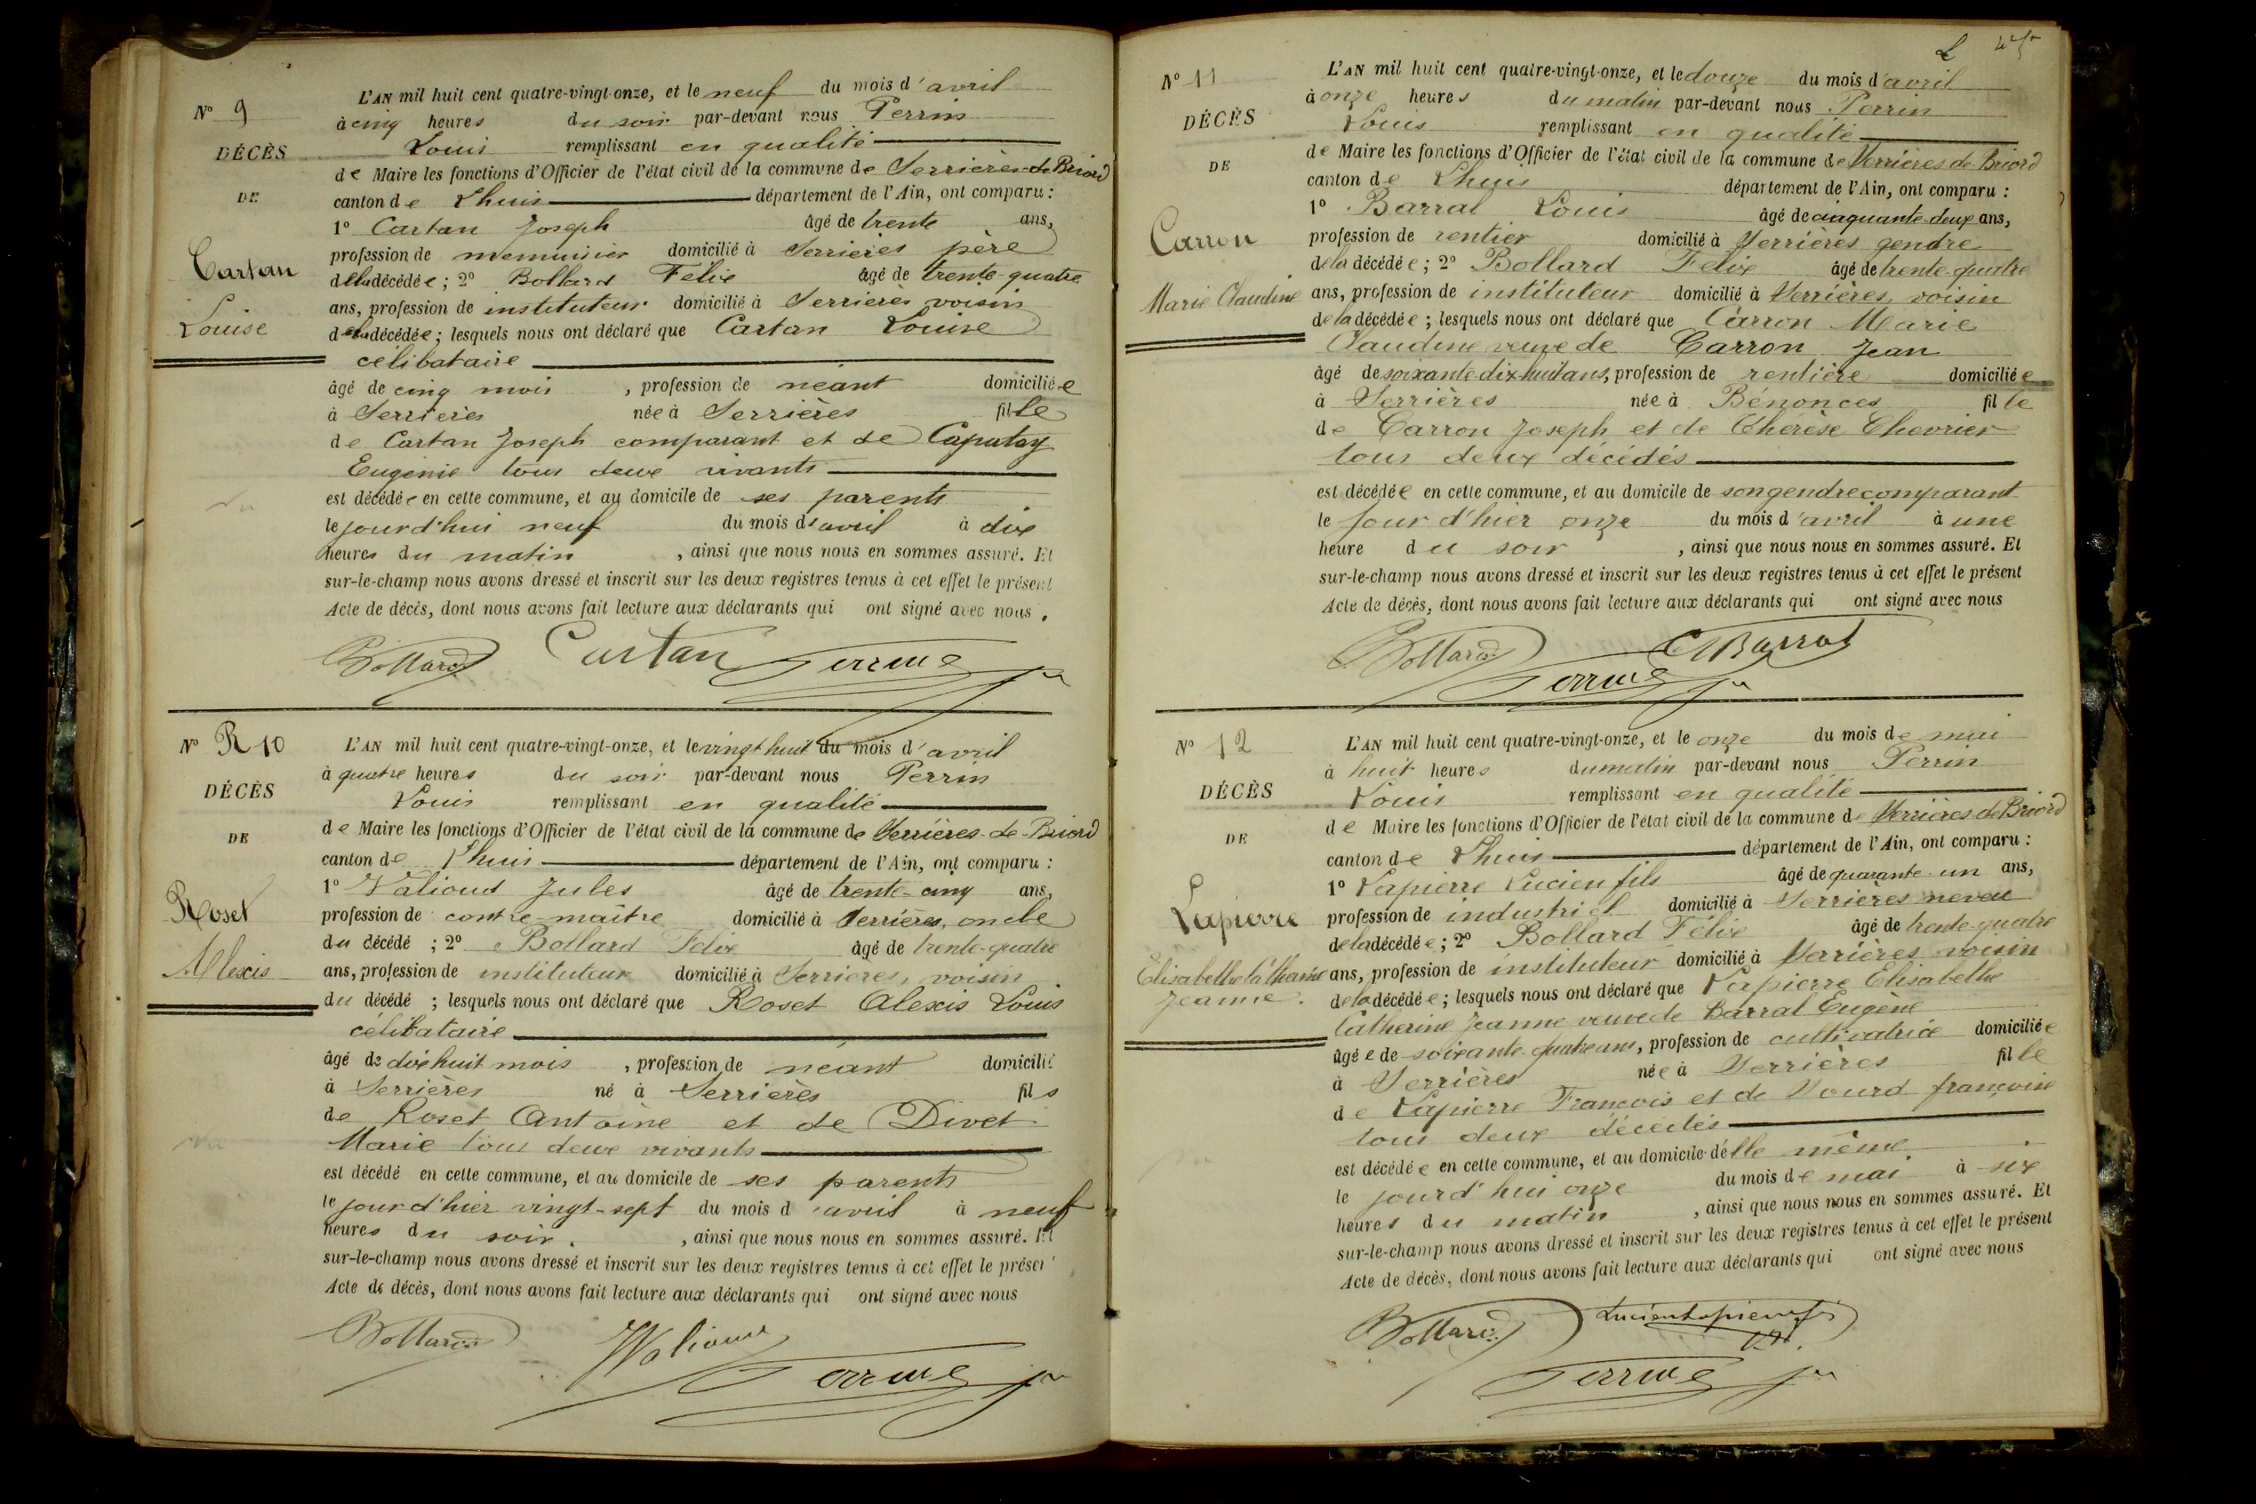 N° 9
DÉCÈS
DE
Cartan
Louise
L'AN mil huit cent quatre-vingt-onze, et le neuf du mois d'avril
à cinq heures du soir par-devant nous Perrin
Louis remplissant en qualité
de Maire les fonctions d'Officier de l'état civil de la commune de Serrières-de-Briord
canton de Lhuis département de l'Ain, ont comparu :
1° Cartan Joseph âgé de trente ans,
profession de menuisier domicilié à Serrières père
de la décédée ; 2° Bollard Félix âgé de trente-quatre
ans, profession de instituteur domicilié à Serrières, voisin
de la décédée ; lesquels nous ont déclaré que Cartan Louise
célibataire
âgé de cinq mois , profession de néant domiciliée
à Serrières née à Serrières fille
de Cartan Joseph comparant et de Caputay
Eugénie tous deux vivants
est décédée en cette commune, et au domicile de ses parents
le jourd'hui neuf du mois d'avril à dix
heures du matin , ainsi que nous nous en sommes assuré. Et
sur-le-champ nous avons dressé et inscrit sur les deux registres tenus à cet effet le présent
Acte de décès, dont nous avons fait lecture aux déclarants qui ont signé avec nous.
Bollard Cartan Perrin
N° R 10
DÉCÈS
DE
Roset
Alexis
L'AN mil huit cent quatre-vingt-onze, et le vingt huit du mois d'avril
à quatre heures du soir par-devant nous Perrin
Louis remplissant en qualité
de Maire les fonctions d'Officier de l'état civil de la commune de Serrières-de-Briord
canton de Lhuis département de l'Ain, ont comparu :
1° Valioud Jules âgé de trente-cinq ans,
profession de contre-maître domicilié à Serrières, oncle
du décédé ; 2° Bollard Félix âgé de trente-quatre
ans, profession de instituteur domicilié à Serrières, voisin
du décédé ; lesquels nous ont déclaré que Roset Alexis Louis
célibataire
âgé de dix huit mois , profession de néant domicilié
à Serrières né à Serrières fils
de Roset Antoine et de Divet
Marie tous deux vivants
est décédé en cette commune, et au domicile de ses parents
le jour d'hier vingt-sept du mois d'avril à neuf
heures du soir. , ainsi que nous nous en sommes assuré. Et
sur-le-champ nous avons dressé et inscrit sur les deux registres tenus à cet effet le présent
Acte de décès, dont nous avons fait lecture aux déclarants qui ont signé avec nous
Bollard Perrin
N° 11
DÉCÈS
DE
Carron
Marie Claudine
L'AN mil huit cent quatre-vingt-onze, et le douze du mois d'avril
à onze heures du matin par-devant nous Perrin
Louis remplissant en qualité
de Maire les fonctions d'Officier de l'état civil de la commune de Serrières de Briord
canton de Lhuis département de l'Ain, ont comparu :
1° Barral Louis âgé de cinquante-deux ans,
profession de rentier domicilié à Serrières gendre
de la décédée ; 2° Bollard Félix âgé de trente-quatre
ans, profession de instituteur domicilié à Serrières, voisin
de la décédée ; lesquels nous ont déclaré que Carron Marie
Claudine veuve de Carron Jean
âgé de soixante-dix-huit ans, profession de rentière domiciliée
à Serrières née à Bénonces fille
de Carron Joseph et de Thérèse Chevrier
tous deux décédés
est décédée en cette commune, et au domicile de son gendre comparant
le jour d'hier onze du mois d'avril à une
heure du soir , ainsi que nous nous en sommes assuré. Et
sur-le-champ nous avons dressé et inscrit sur les deux registres tenus à cet effet le présent
Acte de décès, dont nous avons fait lecture aux déclarants qui ont signé avec nous
Bollard Barral
Perrin
N° 12
DÉCÈS
DE
Lapierre
Elisabethe Catherine
Jeanne.
L'AN mil huit cent quatre-vingt-onze, et le onze du mois de mai
à huit heures du matin par-devant nous Perrin
Louis remplissant en qualité
de Maire les fonctions d'Officier de l'état civil de la commune de Serrières de Briord
canton de Lhuis département de l'Ain, ont comparu :
1° Lapierre Lucien fils âgé de quarante-un ans,
profession de industriel domicilié à Serrières neveu
de la décédée ; 2° Bollard Félix âgé de trente-quatre
ans, profession de instituteur domicilié à Serrières voisin
de la décédée ; lesquels nous ont déclaré que Lapierre Elisabethe
Catherine Jeanne veuve de Barral Eugène
âgée de soixante-quatre ans, profession de cultivatrice domiciliée
à Serrières née à Serrières fille
de Lapierre François et de Sourd françoise
tous deux décédés
est décédée en cette commune, et au domicile d'elle même
le jourd'hui onze du mois de mai à six
heures du matin , ainsi que nous nous en sommes assuré. Et
sur-le-champ nous avons dressé et inscrit sur les deux registres tenus à cet effet le présent
Acte de décès, dont nous avons fait lecture aux déclarants qui ont signé avec nous
Bollard Lucien Lapierre fils
Perrin